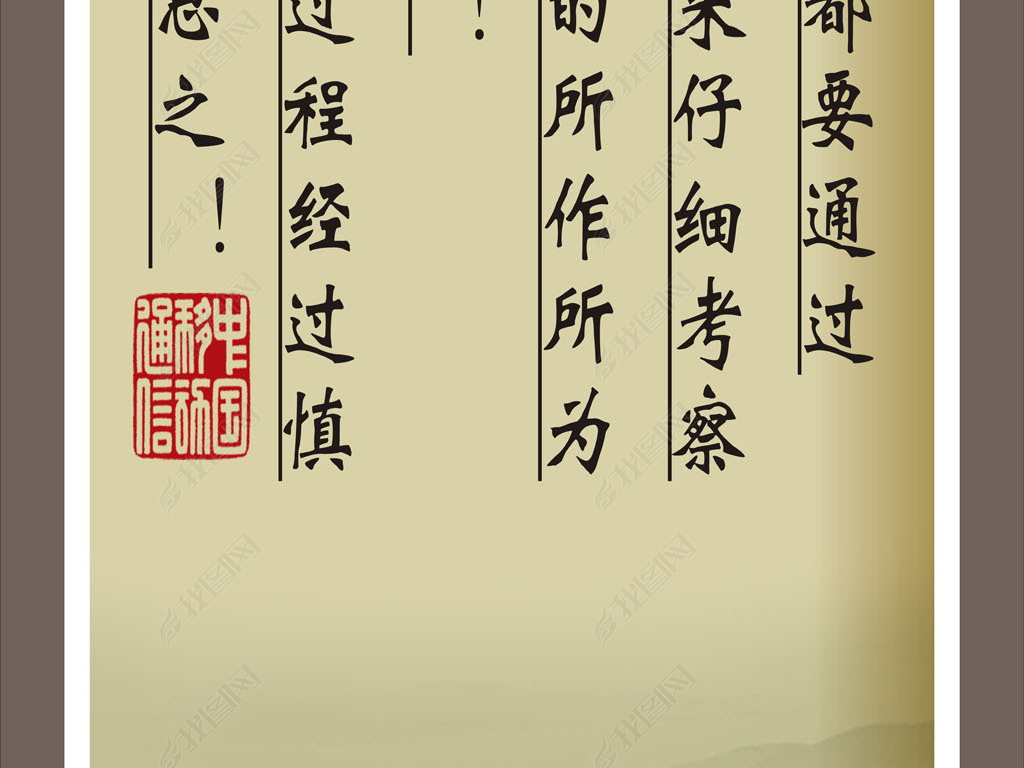 都要通过
仔细考察
的所作所为
！
过程经过慎
之！
中国
移动
通信
找图网